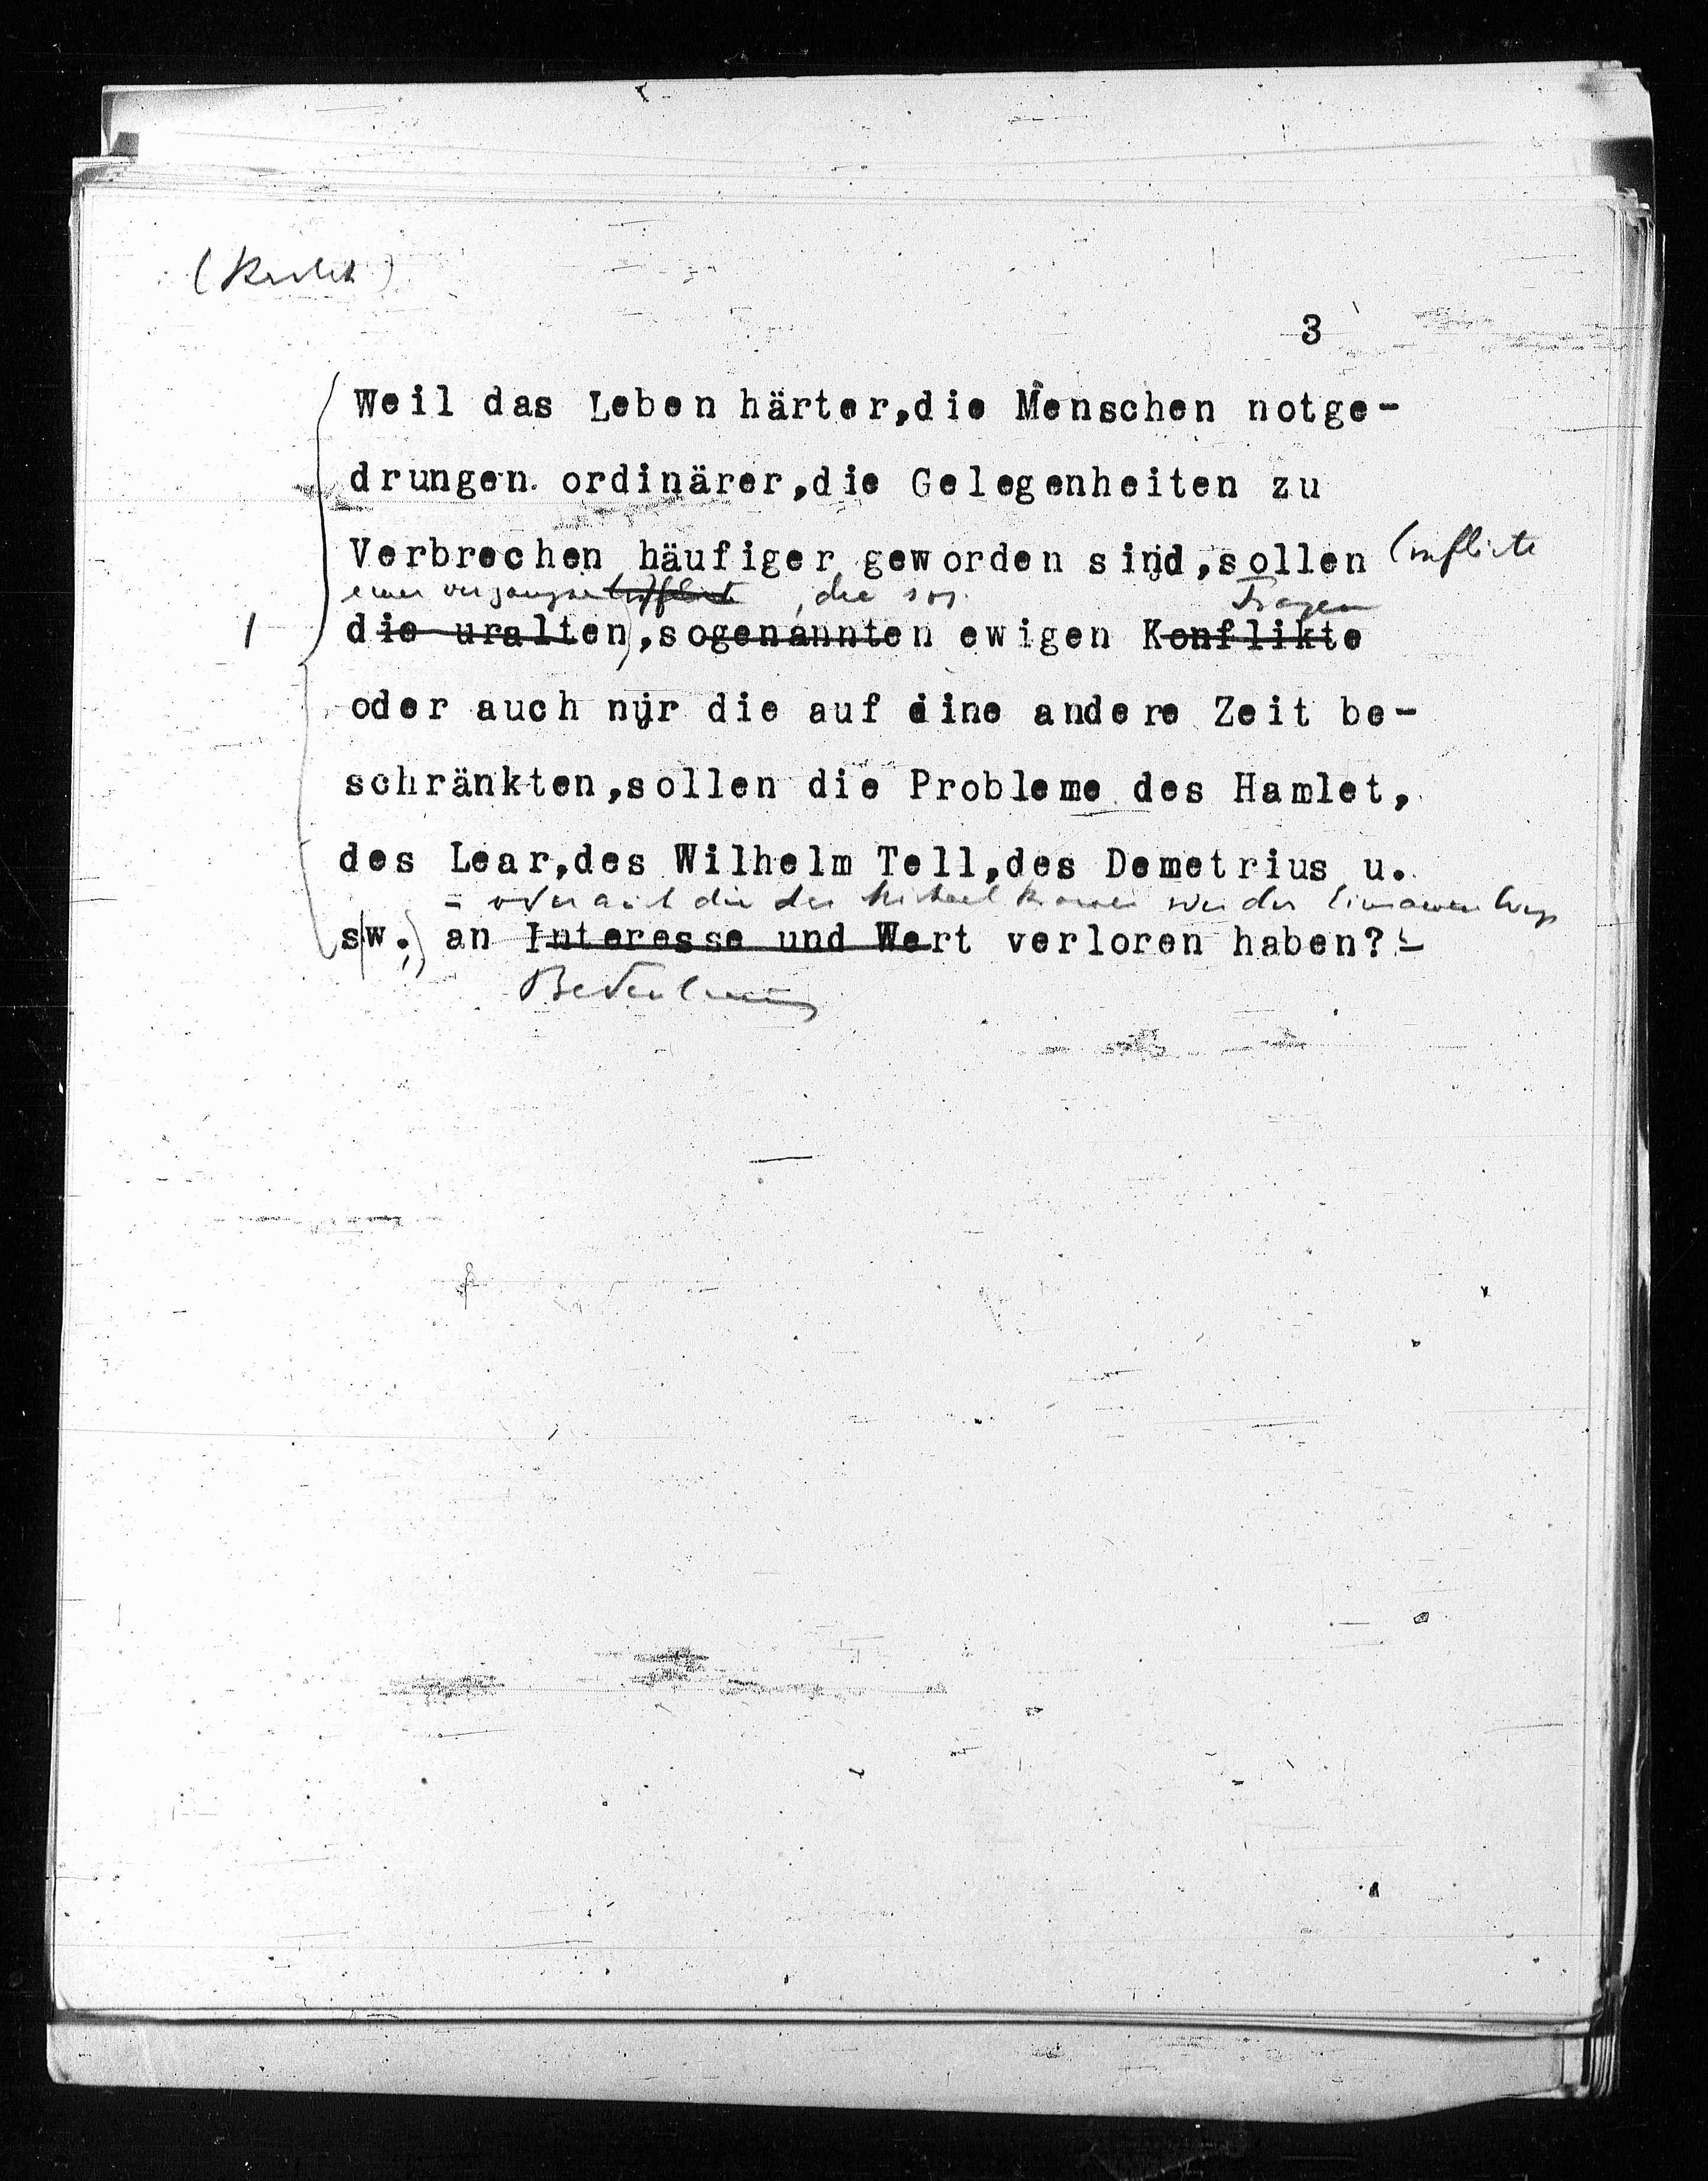 3
Weil das Leben härter,die Menschen notge-
drungen ordinärer,die Gelegenheiten zu
Verbrechen häufiger geworden sind,sollen Conflicte
einer , die sog. Fragen
die uralten,sogenannten ewigen Konflikte
oder auch nur die auf eine andere Zeit be-
schränkten,sollen die Probleme des Hamlet,
des Lear,des Wilhelm Tell,des Demetrius u.
oder auch die des Michael Kramer
sw. an Interesse und Wert verloren haben?
Bedeutung